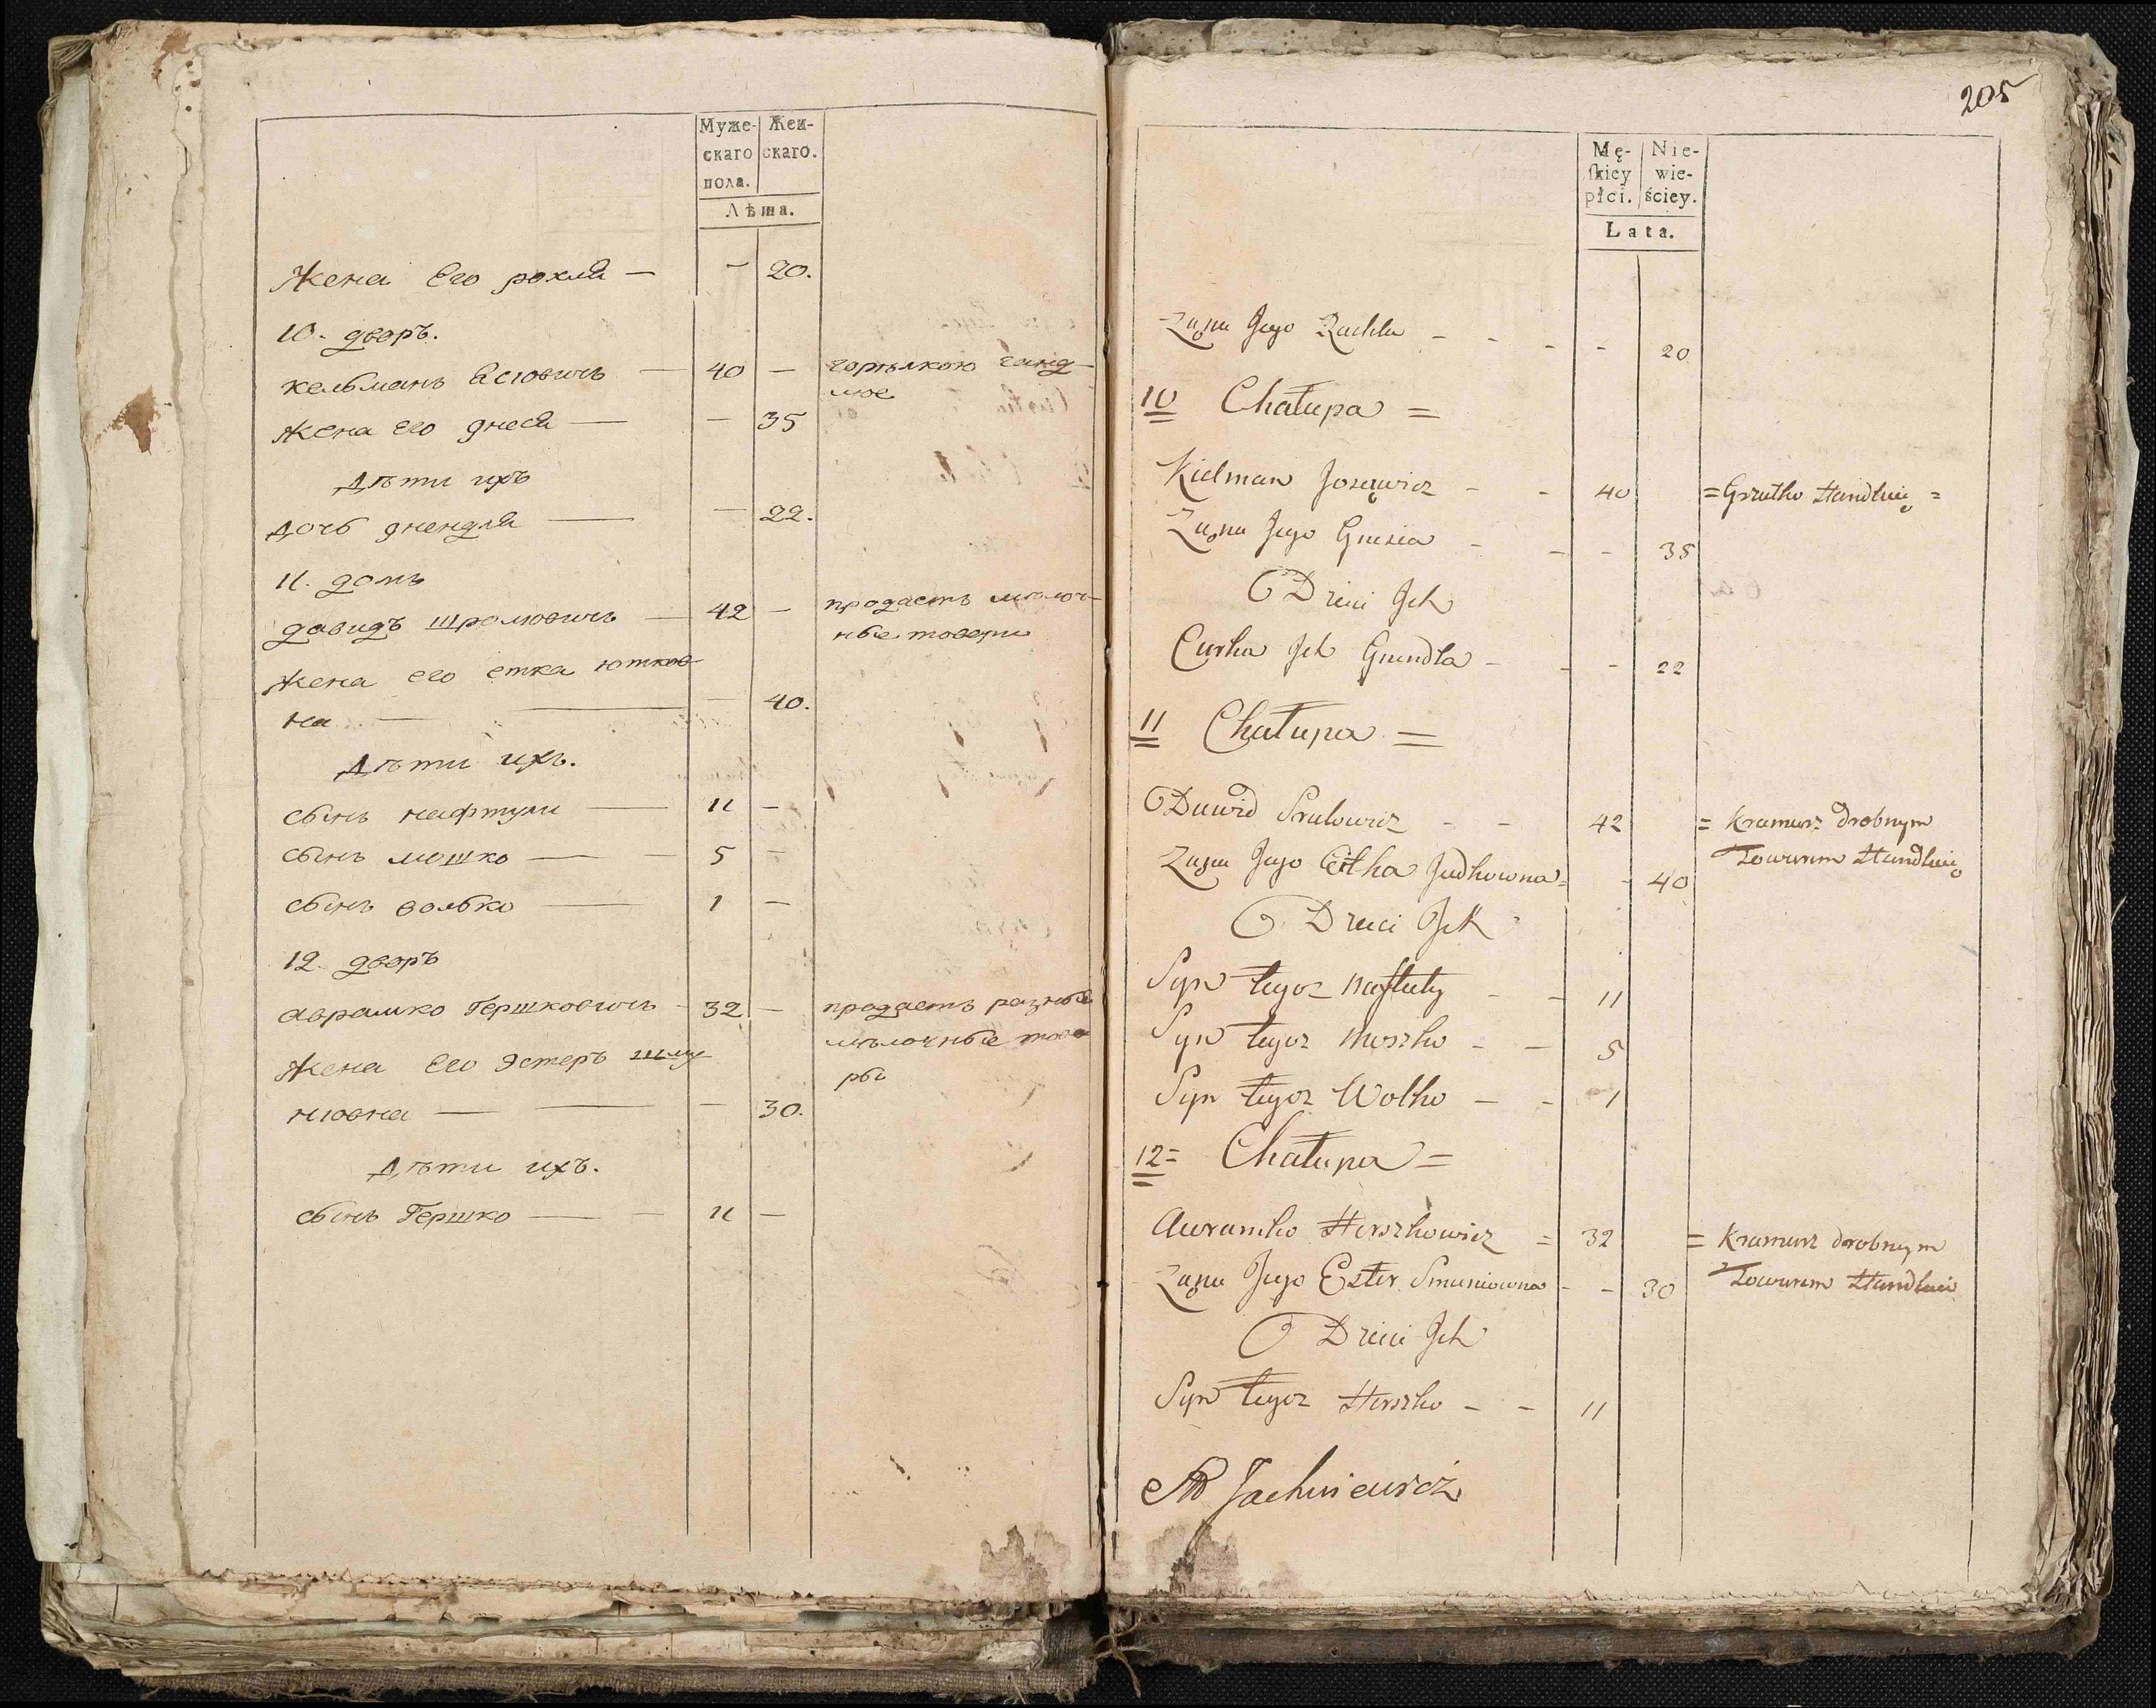 Муже-
скаго
пола.
Жен-
скаго.
Лѣта.
Жена Его рохля — — 20.
10. дворъ.
кельманъ Есiовичъ — 40 — горѣлкою ганд-
люе
Жена его гнеся — — 35
Дѣти ихъ
Дочь гнендля — — 22.
11. домъ
давидъ шроловичъ — 42 — продаетъ мѣлоч-
ные товары
Жена его етка ютков-
на — — — 40.
Дѣти ихъ.
сынъ нафтули — 11 —
сынъ мошко — — 5 —
сынъ волько — 1 —
12. дворъ
аврамко Гершковичъ - 32 — продаетъ разные
мѣлочные това
ры
Жена Его Эстеръ шму
нiовна — — — 30.
Дѣти ихъ.
сынъ Гершко — — 11 —
205
Mę-
skiey
płci.
Nie-
wie-
ściey.
Lata.
Zona Jego Rachla - - - - 20
10 Chałupa =
Kielman Joselowicz - - 40 = Gorzałko Handluie =
Zona Jego Gnesia - - - 35
Dzieci Ich
Curka Ich Gnendla - - - 22
11 Chałupa =
Dawid Srulowicz - - 42 = Kramarz drobnym
Towarem Handluie
Zona Jego Etka Judkowna = - 40
Dzieci Ich
Syn tegoz Naftuly - - 11
Syn tegoz Moszko - - 5
Syn tegoz Wolko - - 1
12 = Chałupa =
Awramko Herszkowicz = 32 = Kramarz drobnym
Towarem Handluie
Zona Jego Ester Smuniowna - - 30
Dzieci Ich
Syn tegoz Herszko - - 11
Jachniewicz